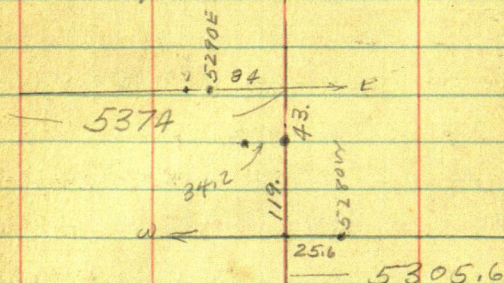 5290E
84
E
5374
43.
34.2
119.
5280W
W
25.6
5305.6